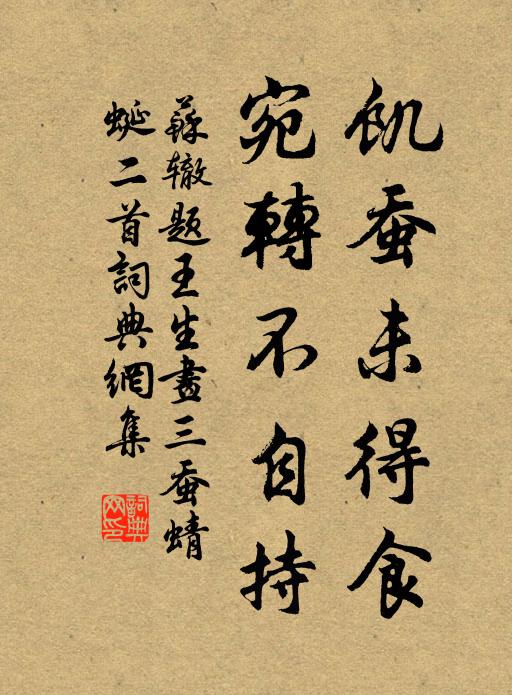 飢蚕未得食
宛轉不自持
蘇辙题王生畫三蚕蜻
蜒二首詞典網集
詞典
网印